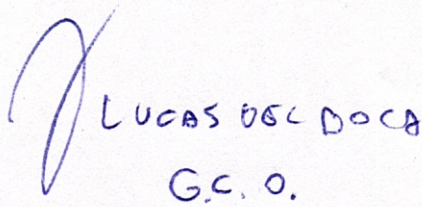 LUCAS DEL BOCA
G.C. O.